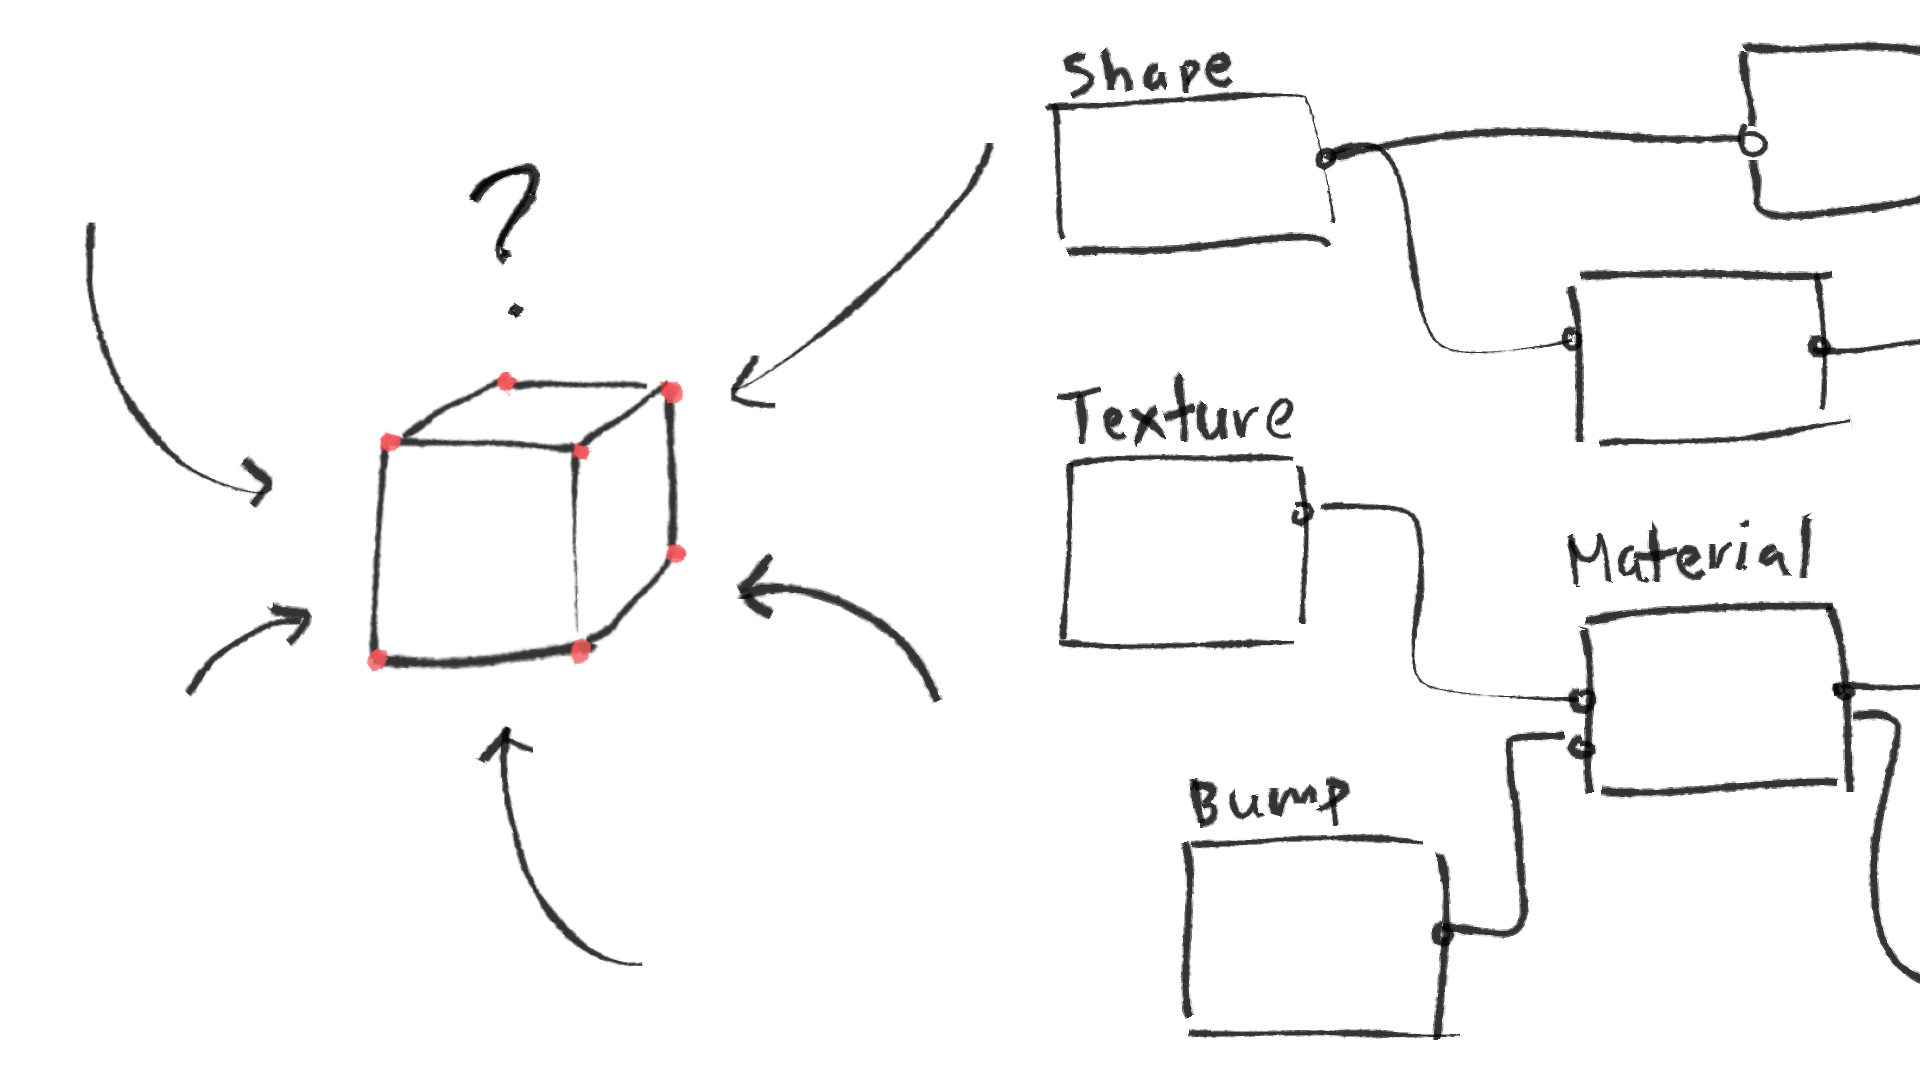 ?
Shape
Texture
Material
Bump